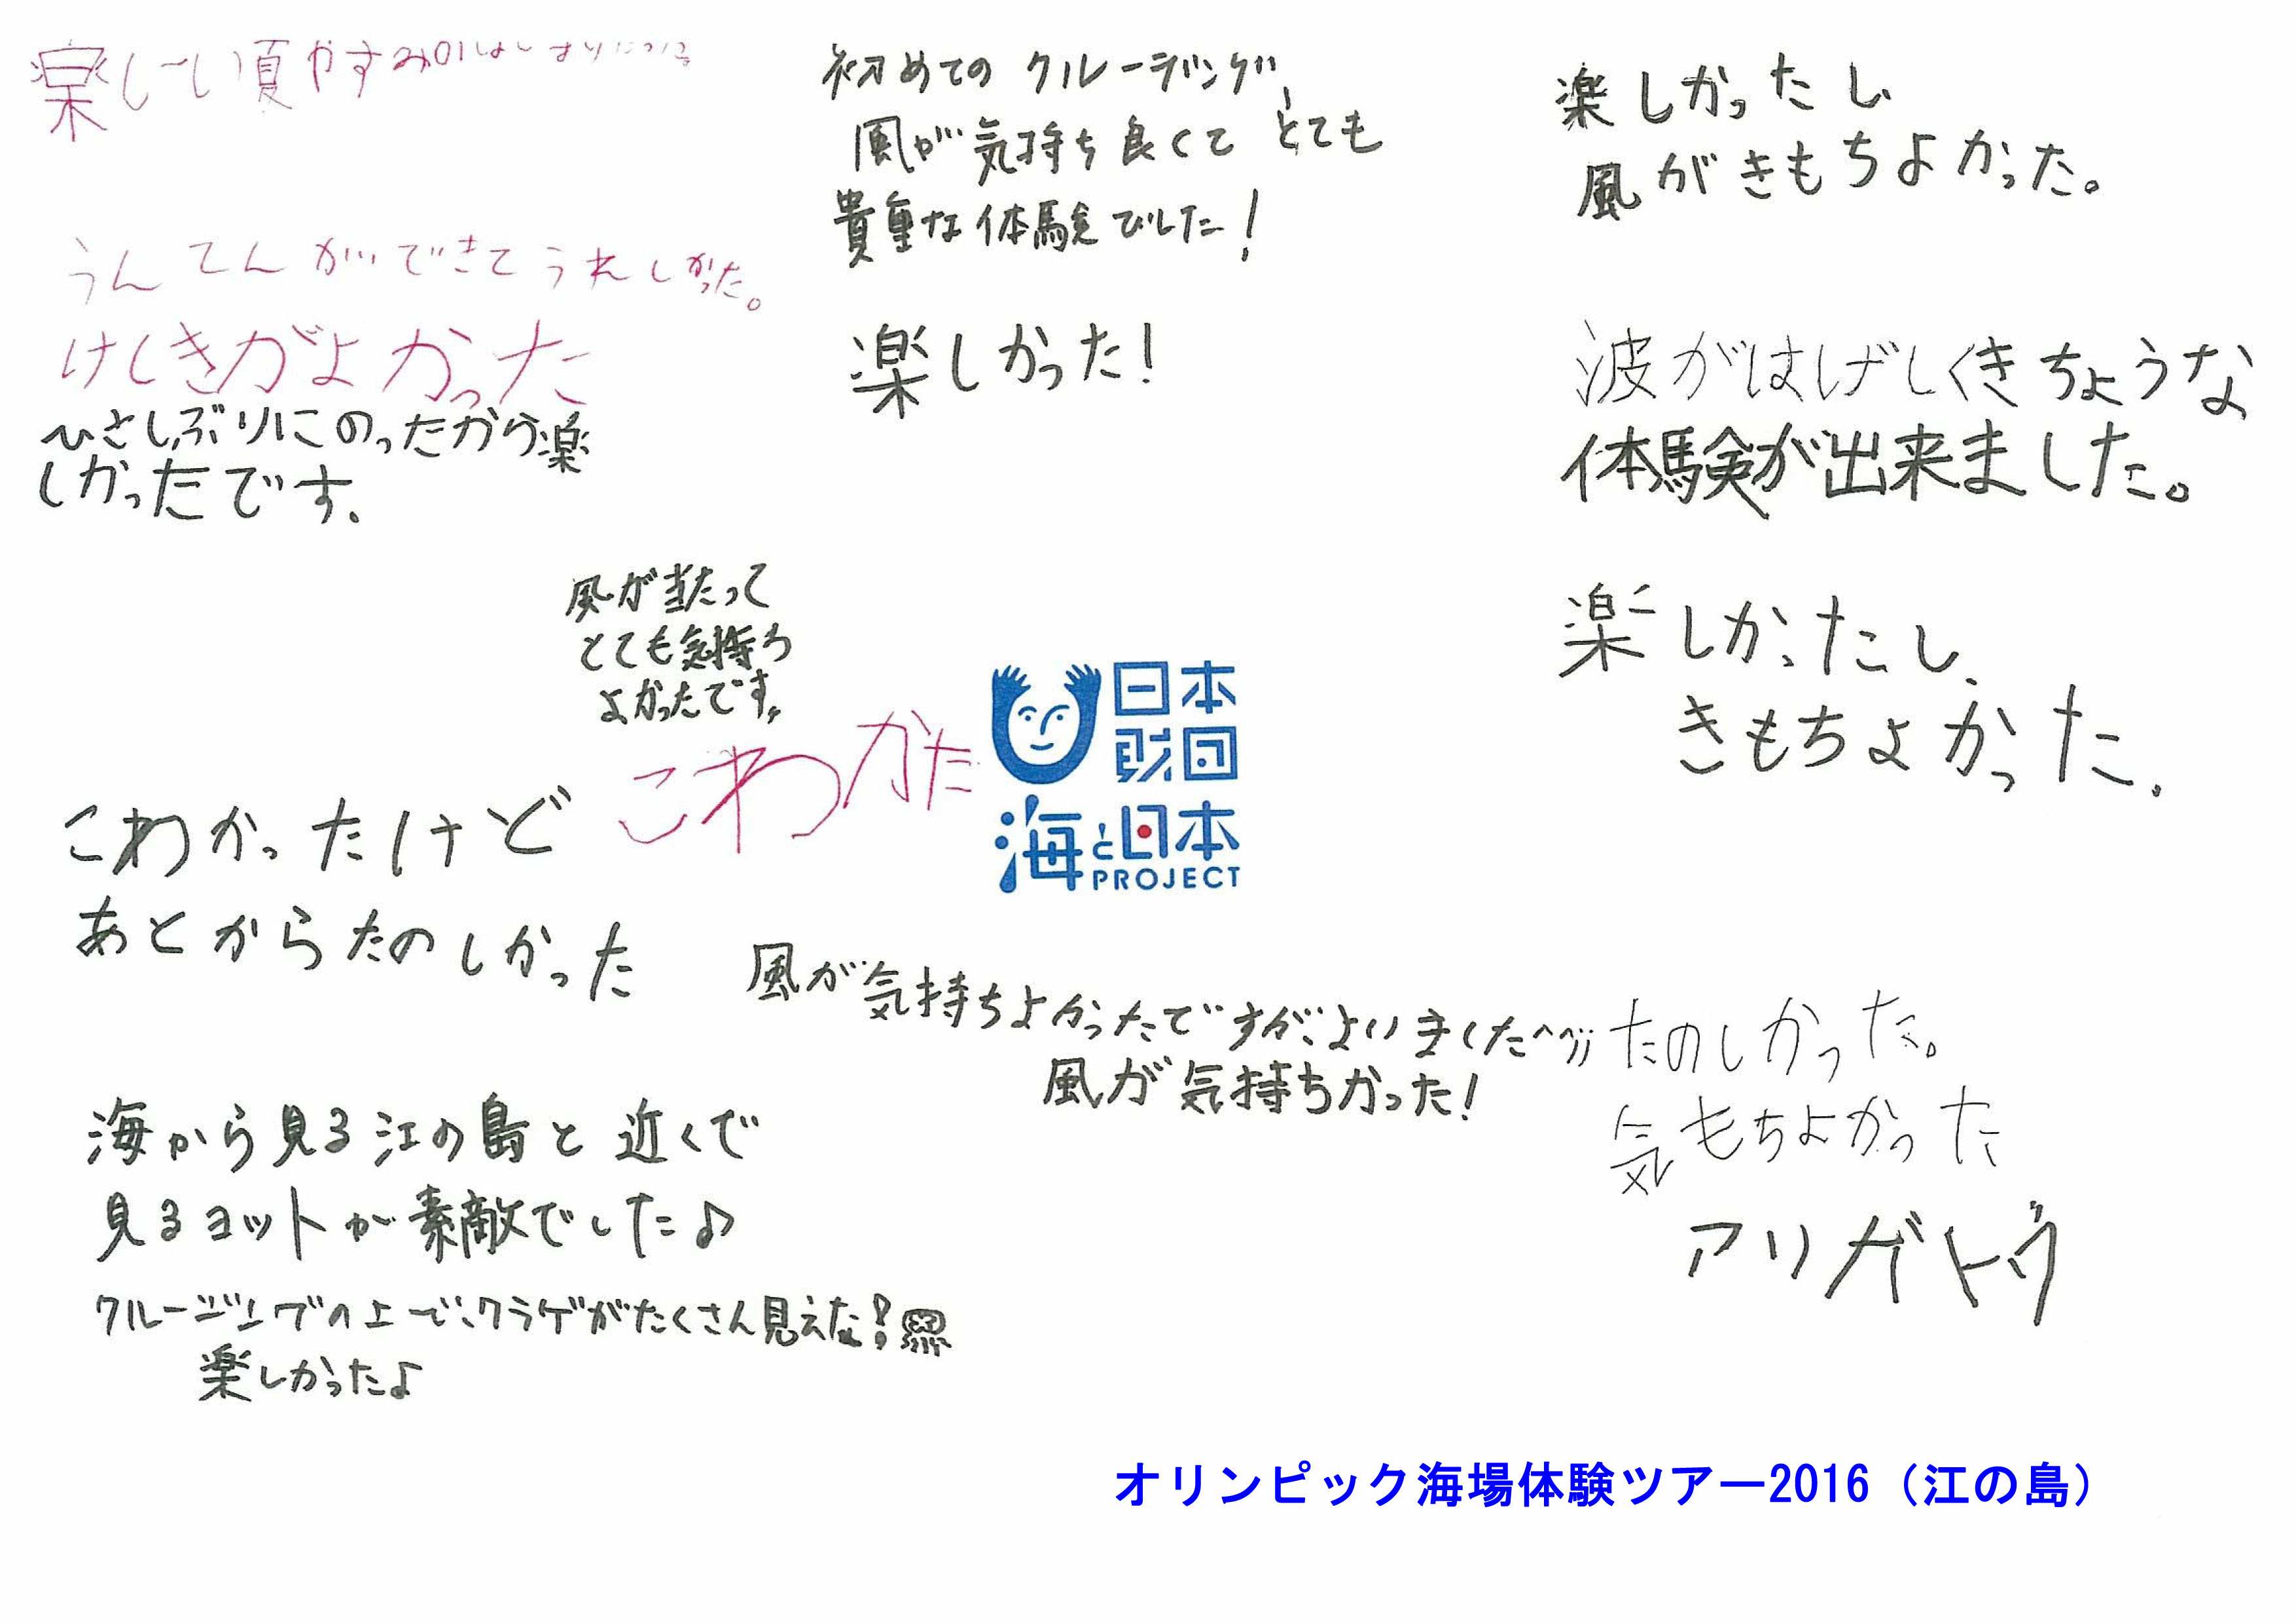 楽しーい夏やすみのはじまりに
うんてんができてうれしかった。
けしきがよかった
ひさしぶりにのったから楽
しかったです。
初めてのクルージング、
風が気持ち良くてとても
貴重な体験でした!
楽しかった!
楽しかったし
風がきもちよかった。
波がはげしくきちょうな
体験が出来ました。
楽しかったし、
きもちよかった.
風が当たって
とても気持ち
よかったです。
こわかた
日本
財団
海と日本
PROJECT
こわかったけど
あとからたのしかった
風が気持ちよかったですが、よいました^^;;
風が気持ちかった!
たのしかった。
気もちよかった
アリガトウ
海から見る江の島と近くで
見るヨットが素敵でした♪
クルージングの上で、クラゲがたくさん見えた!
楽しかった♪
オリンピック海場体験ツアー2016（江の島）